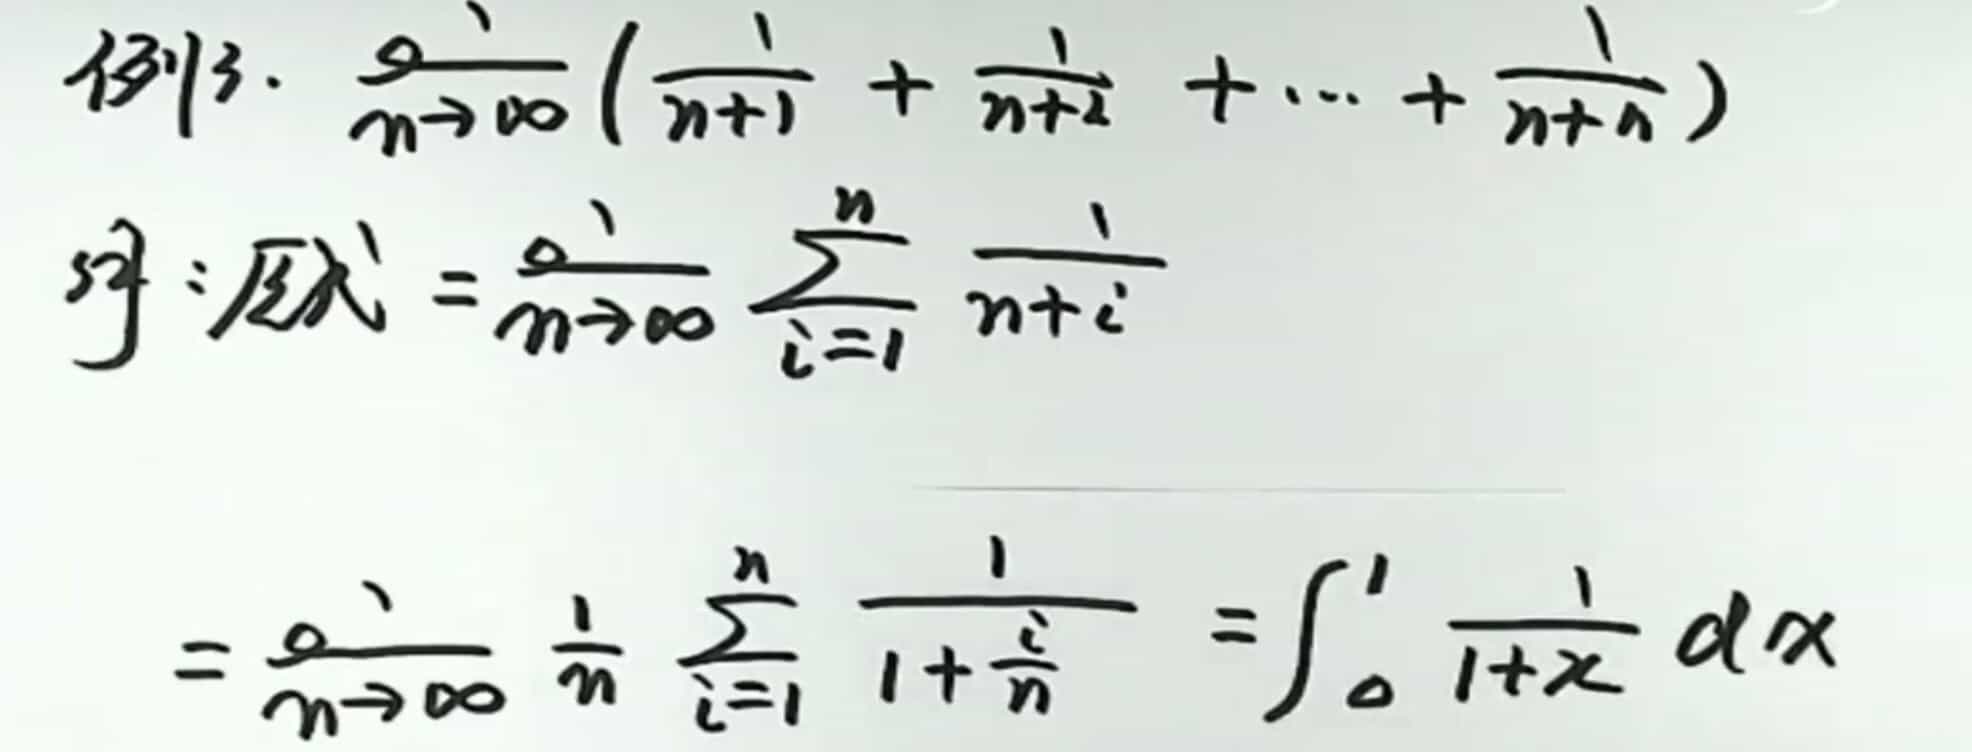 例3. lim n→∞ (1/(n+1) + 1/(n+2) + ··· + 1/(n+n))
解：原式 = lim n→∞ ∑ i=1 n 1/(n+i)
= lim n→∞ 1/n ∑ i=1 n 1/(1+i/n) = ∫₀¹ 1/(1+x) dx